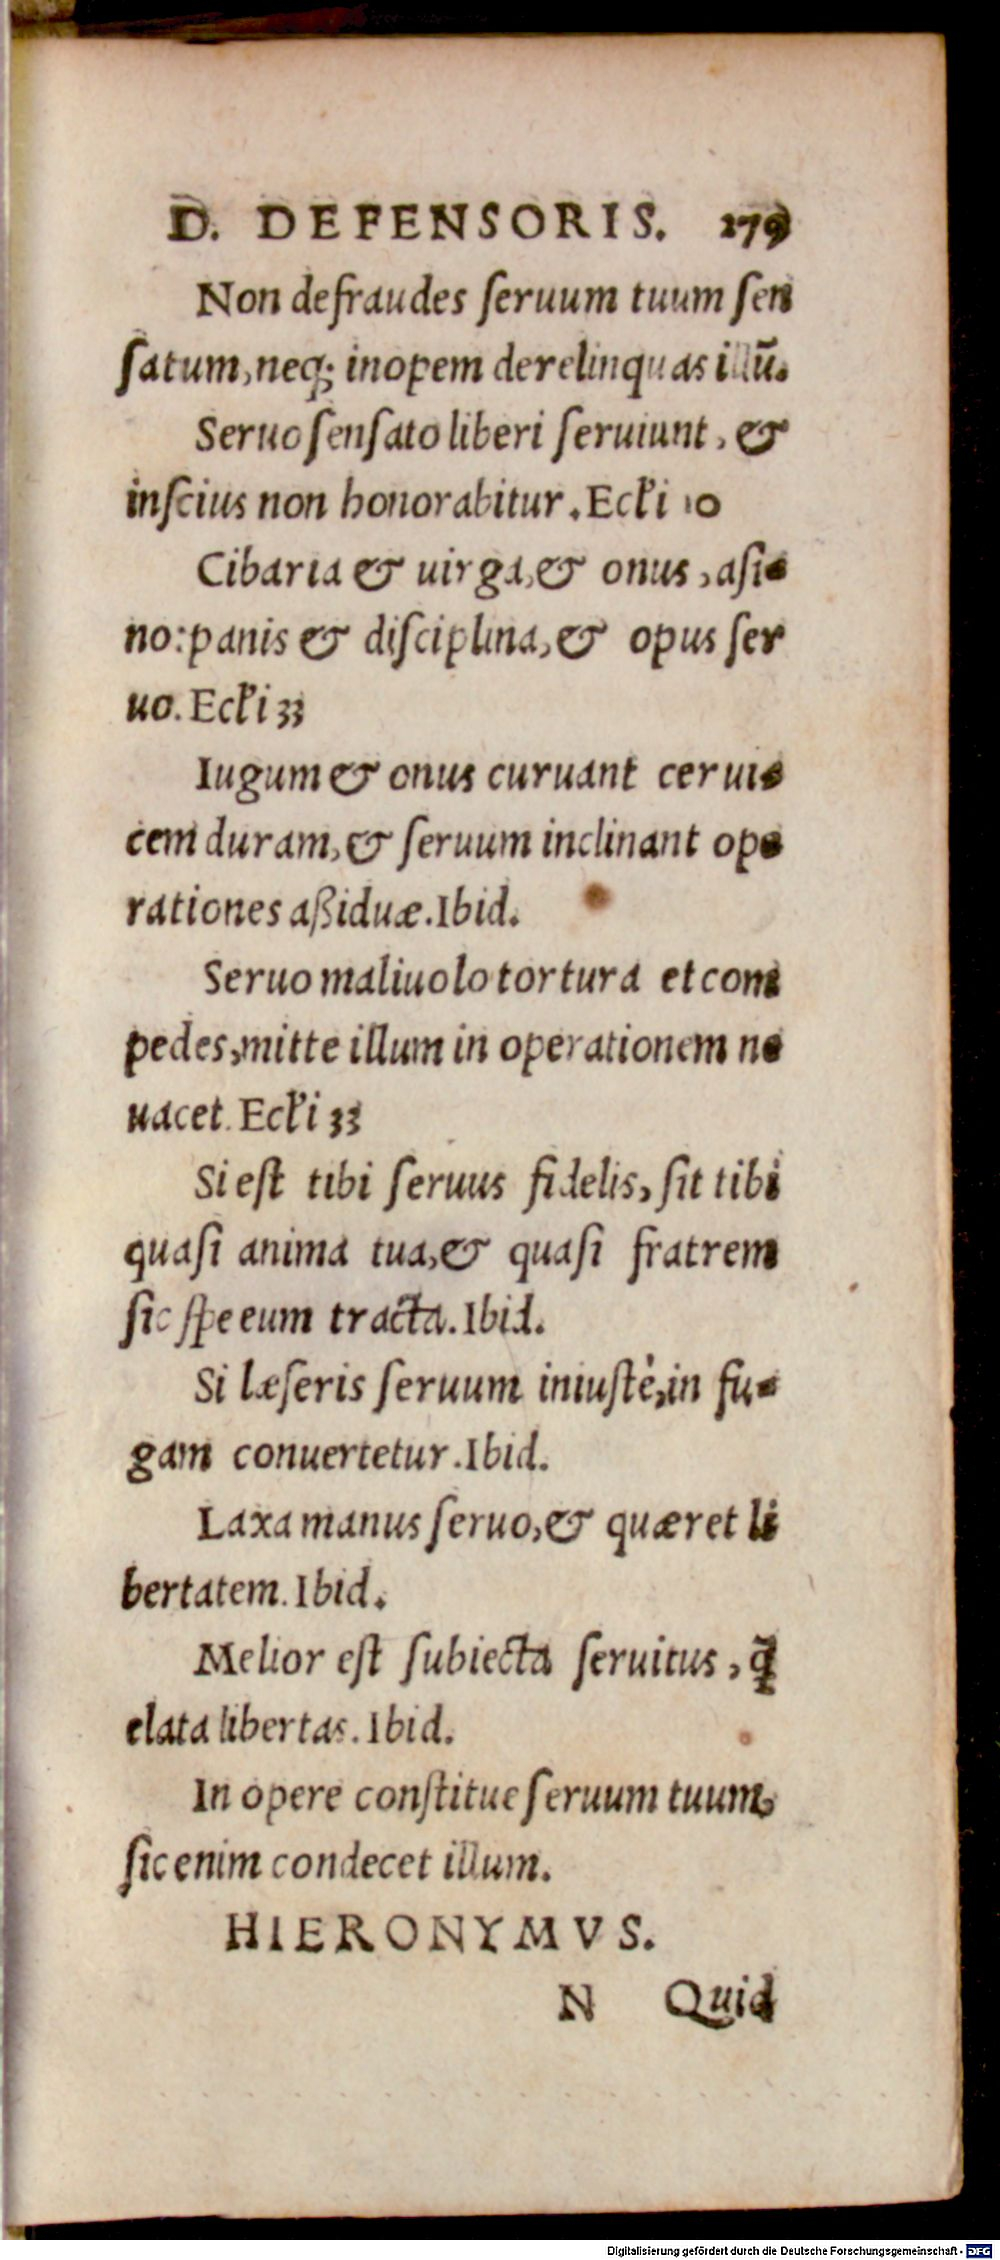 D. DEFENSORIS. 179
Non defraudes ſeruum tuum ſen
ſatum, neq; inopem derelinquas illū.
Seruo ſenſato liberi ſeruiunt, &
inſcius non honorabitur. Eck̃i 10
Cibaria & uirga, & onus, aſi-
no: panis & diſciplina, & opus ſer
uo. Eck̃i 33
Iugum & onus curuant cerui-
cem duram, & ſeruum inclinant ope
rationes aßiduæ. Ibid.
Seruo maliuolo tortura et com
pedes, mitte illum in operationem ne
uacet. Eck̃i 33
Si eſt tibi ſeruus fidelis, ſit tibi
quaſi anima tua, & quaſi fratrem
ſic ſpe eum tracta. Ibid.
Si læſeris ſeruum iniuſtè, in fu-
gam conuertetur. Ibid.
Laxa manus ſeruo, & quæret li
bertatem. Ibid.
Melior eſt ſubiecta ſeruitus, q̃
elata libertas. Ibid.
In opere conſtitue ſeruum tuum,
ſic enim condecet illum.
HIERONYMVS.
N Quid
Digitalisierung gefördert durch die Deutsche Forschungsgemeinschaft - DFG